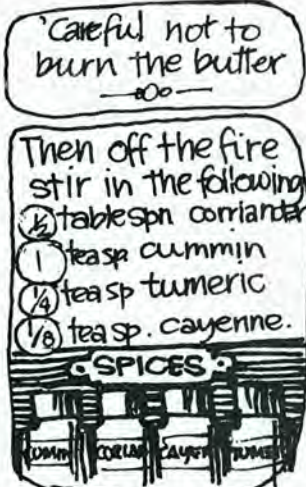 'Careful not to
burn the butter
Then off the fire
stir in the following
1/2 tablespn corriander
1 teasp cummin
1/4 teasp tumeric
1/8 teasp. cayenne.
SPICES
CUMIN CORIAN CAYEN TUME